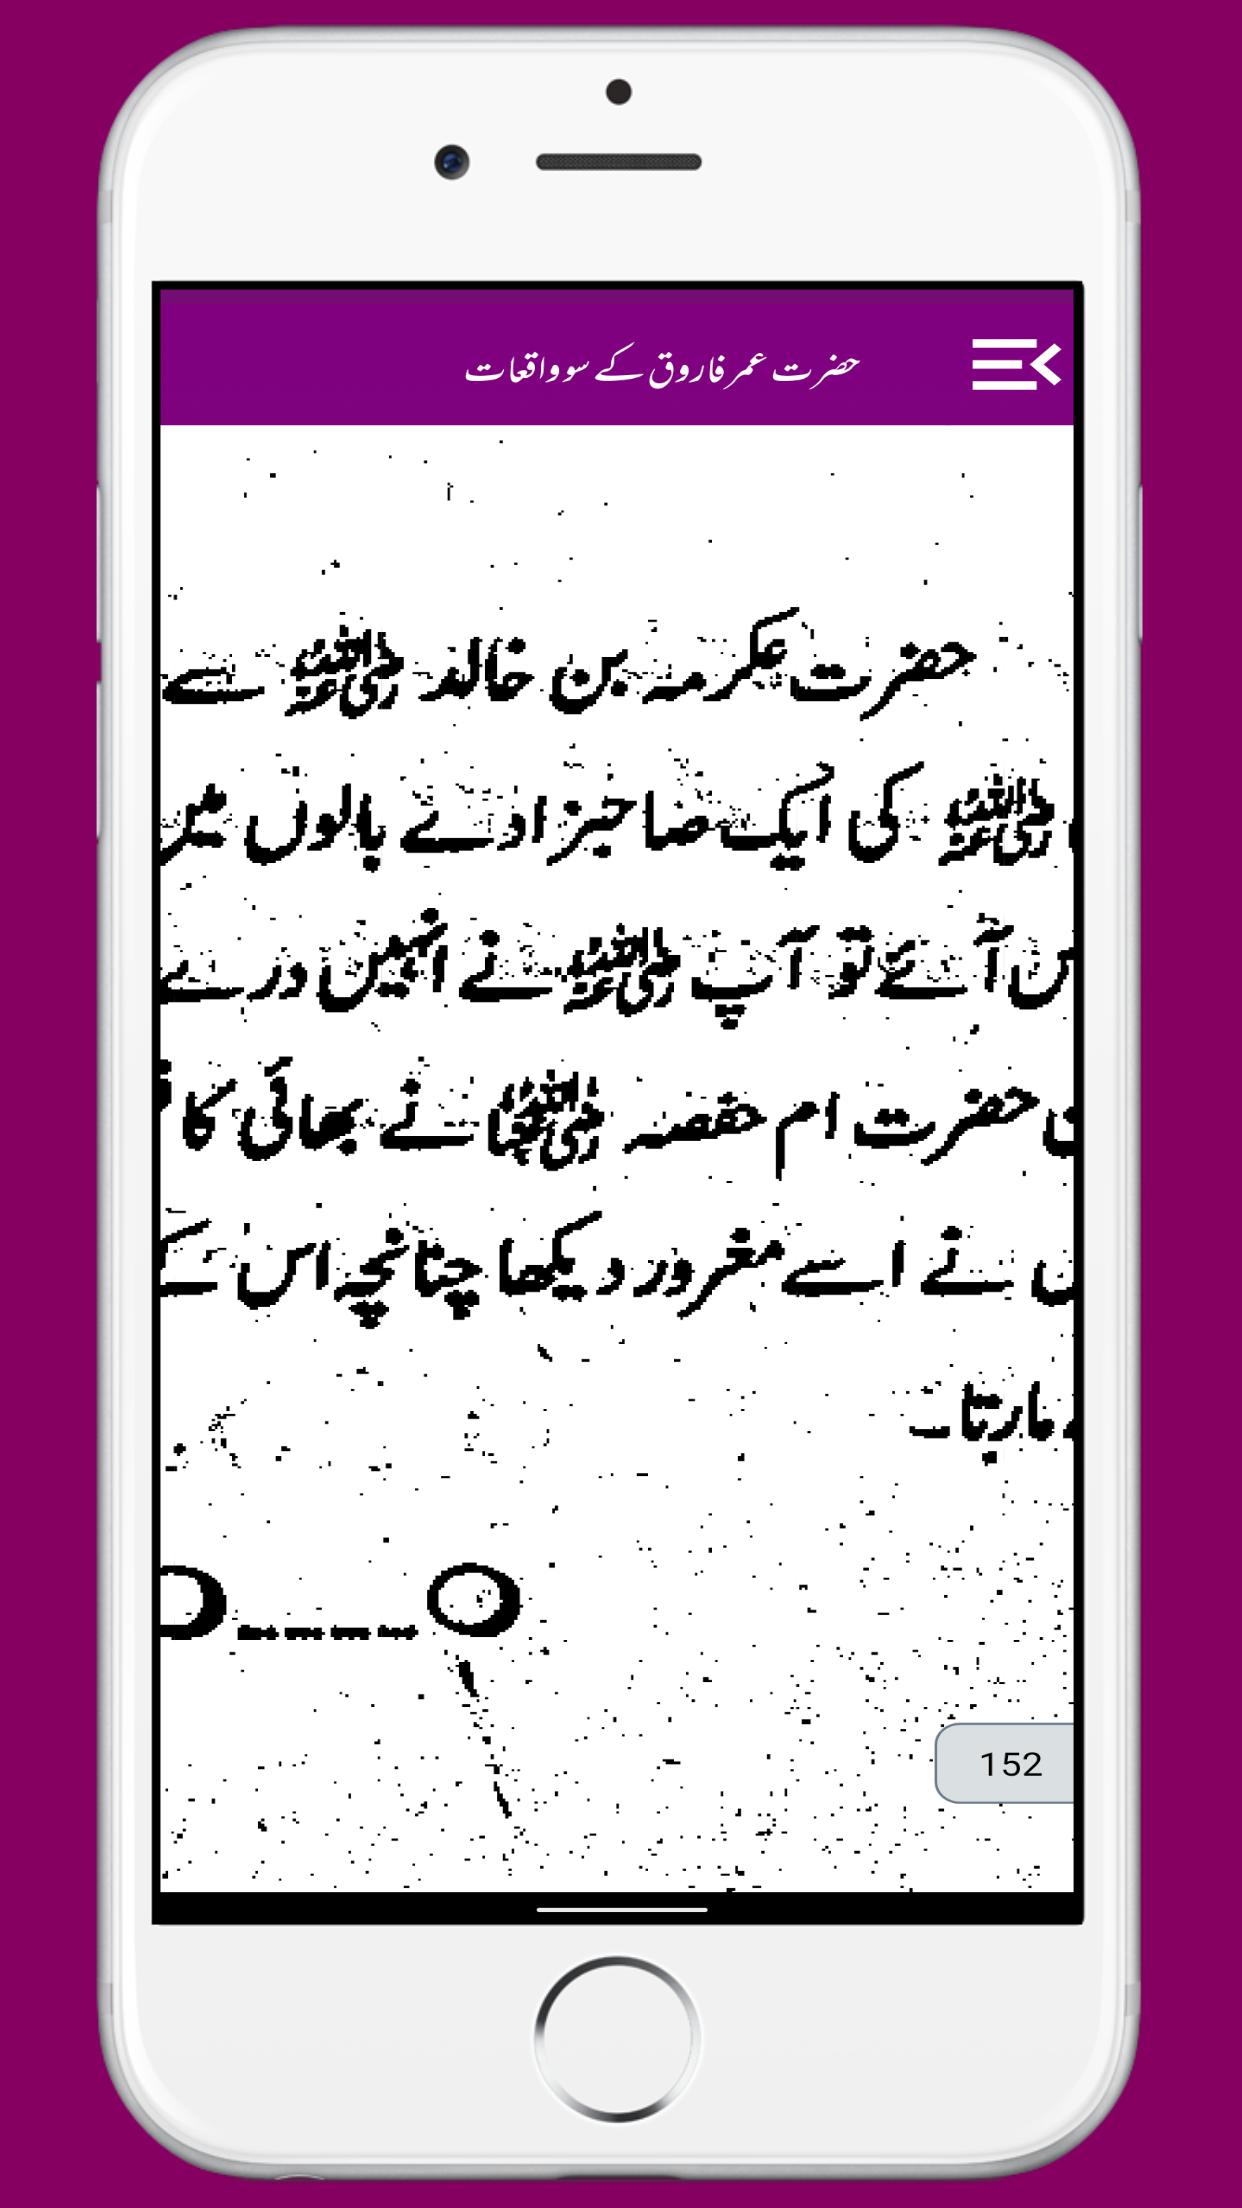 حضرت عمر فاروق کے سو واقعات
حضرت عکرمہ بن خالد رضی اللہ عنہ سے
رضی اللہ عنہ کی ایک صاحبزادے بالوں میں
آئے تو آپ رضی اللہ عنہ نے انہیں درے
حضرت ام حفصہ رضی اللہ عنہا نے بھائی کا
نے اسے مغرور دیکھا چنانچہ اس کے
مارتا
152